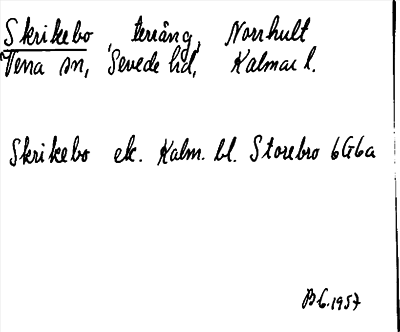 Skrikebo, terräng, Norrhult
Vena sn, Sevede hd, Kalmar l.
Skrikebo ek. Kalm. bl. Storebro 6G6a
1957